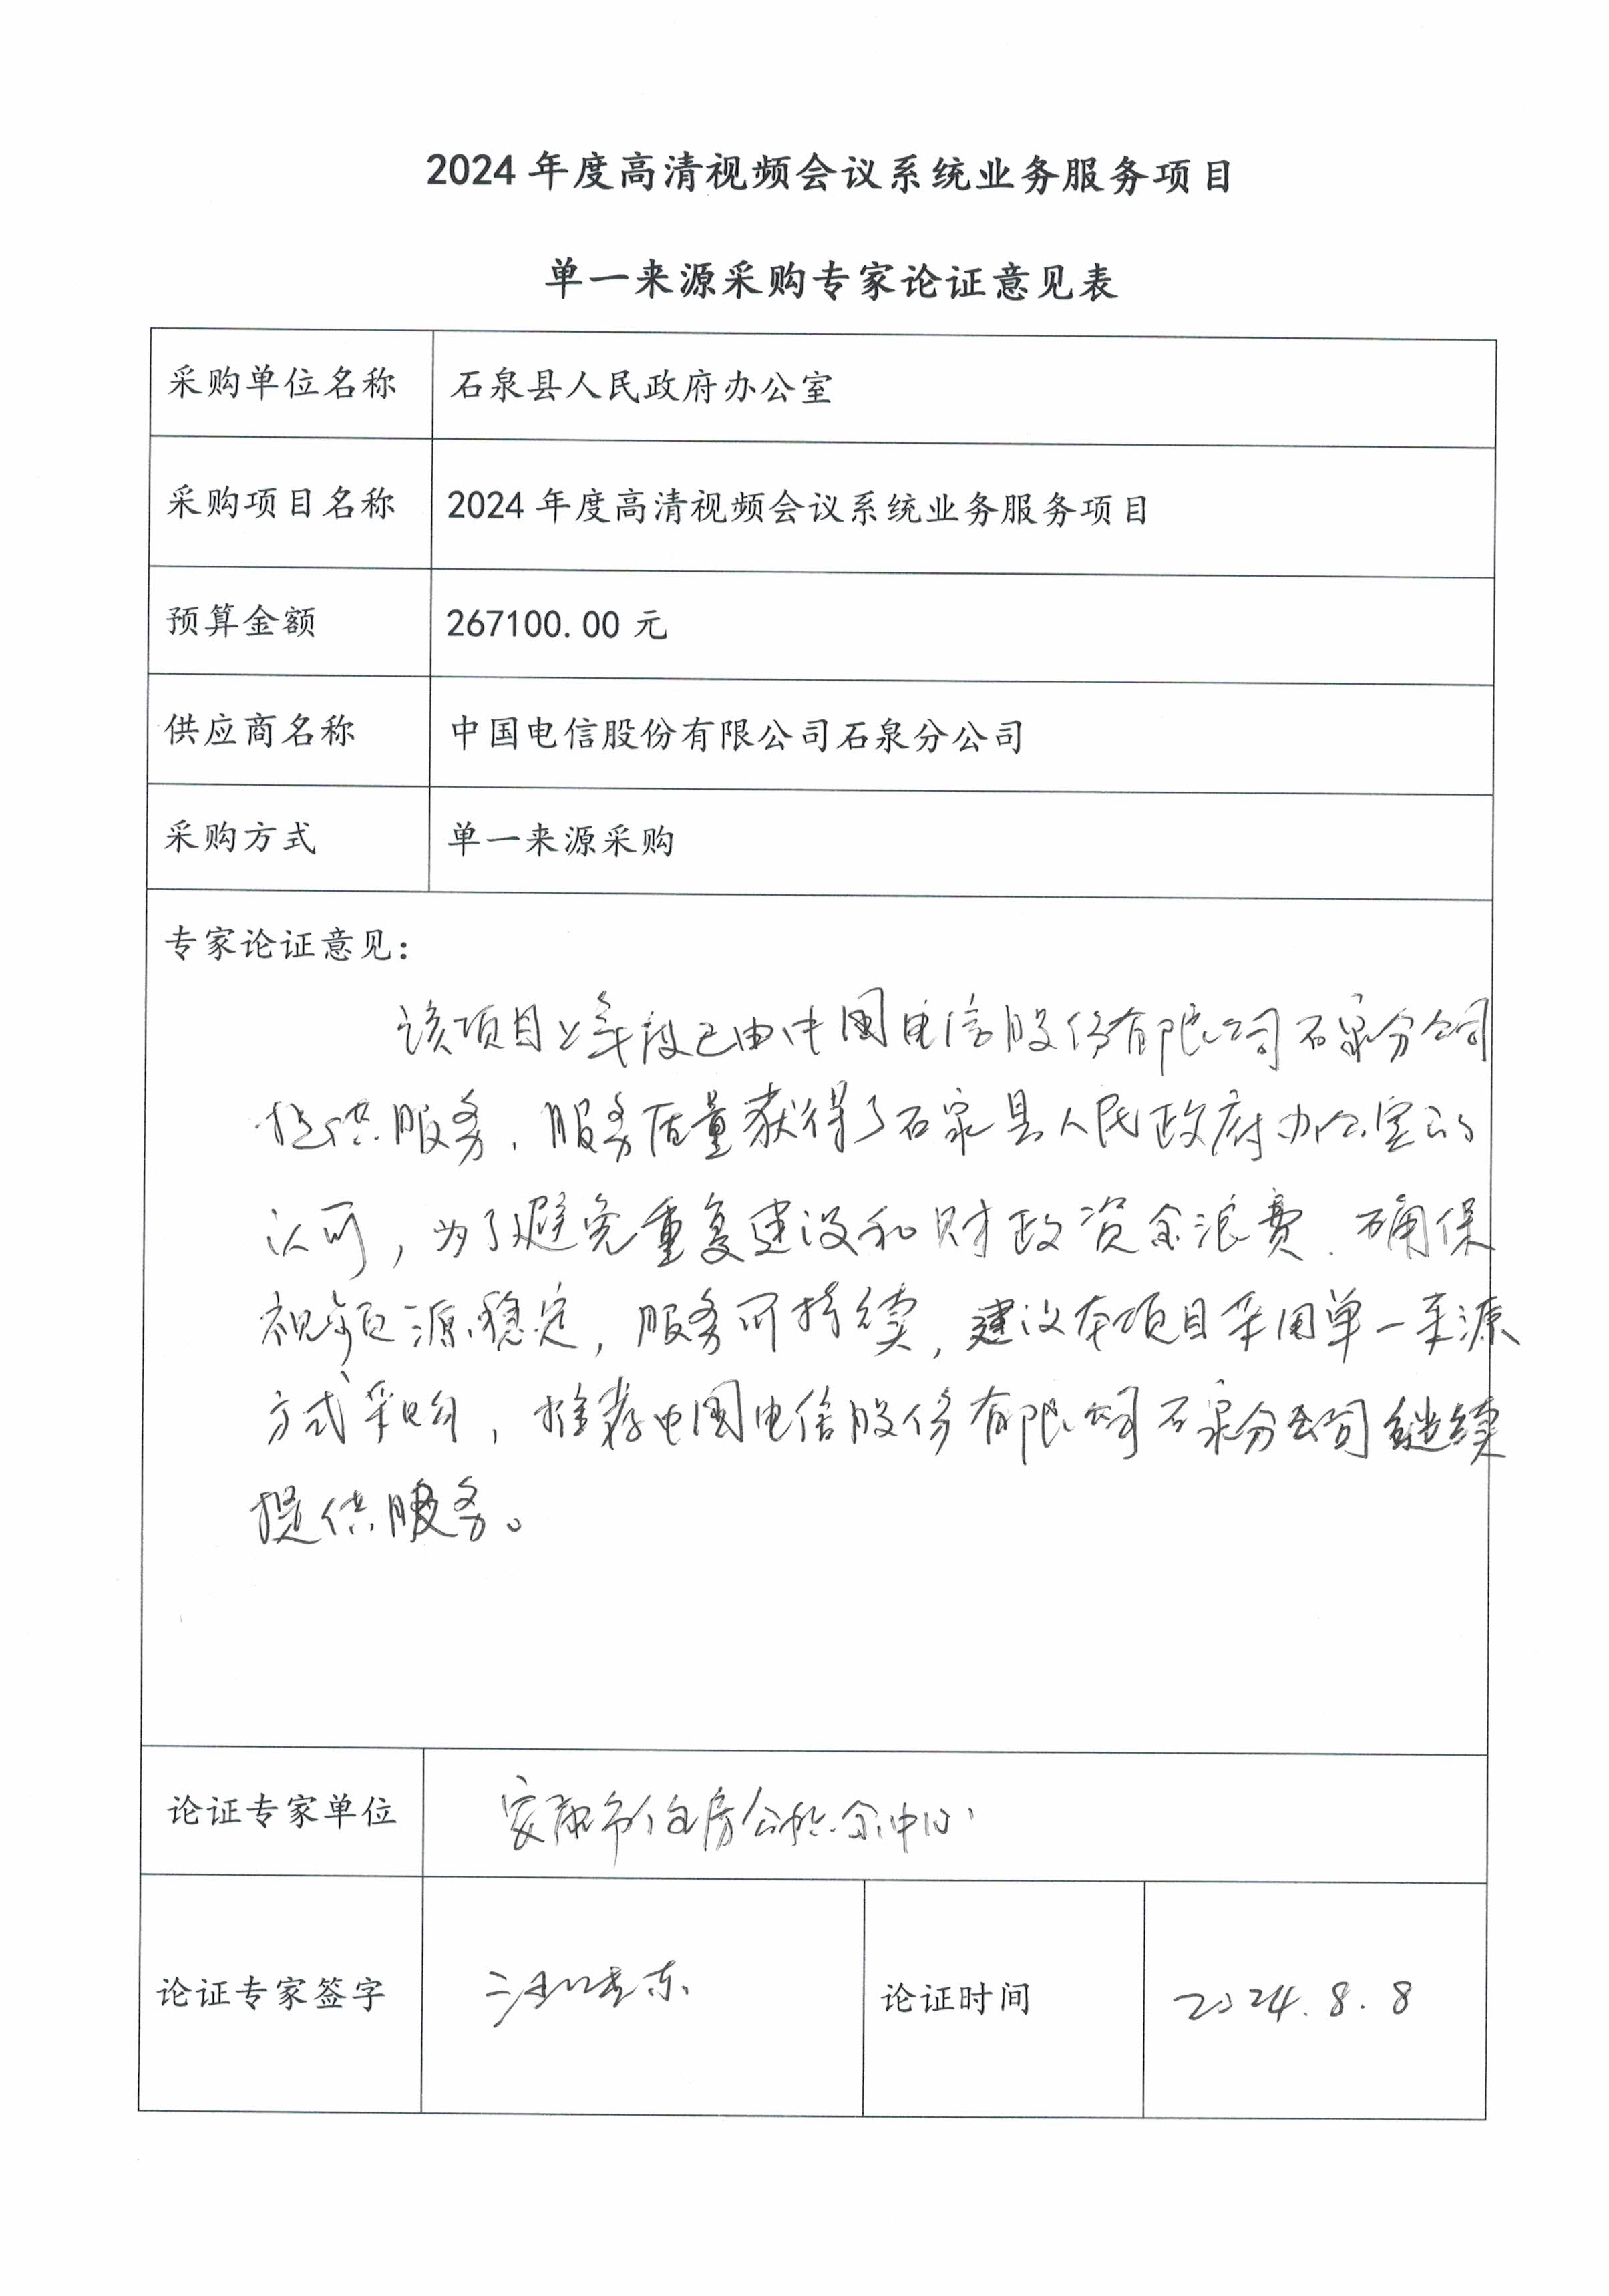 2024 年度高清视频会议系统业务服务项目
单一来源采购专家论证意见表
采购单位名称 石泉县人民政府办公室
采购项目名称 2024 年度高清视频会议系统业务服务项目
预算金额 267100.00 元
供应商名称 中国电信股份有限公司石泉分公司
采购方式 单一来源采购
专家论证意见：
该项目上年度已由中国电信股份有限公司石泉分公司
提供服务，服务质量获得了石泉县人民政府办公室的
认可，为了避免重复建设和财政资金浪费，确保
视频源稳定，服务可持续，建议本项目采用单一来源
方式采购，推荐中国电信股份有限公司石泉分公司继续
提供服务。
论证专家单位 安康市住房公积金中心
论证专家签字 论证时间 2024.8.8